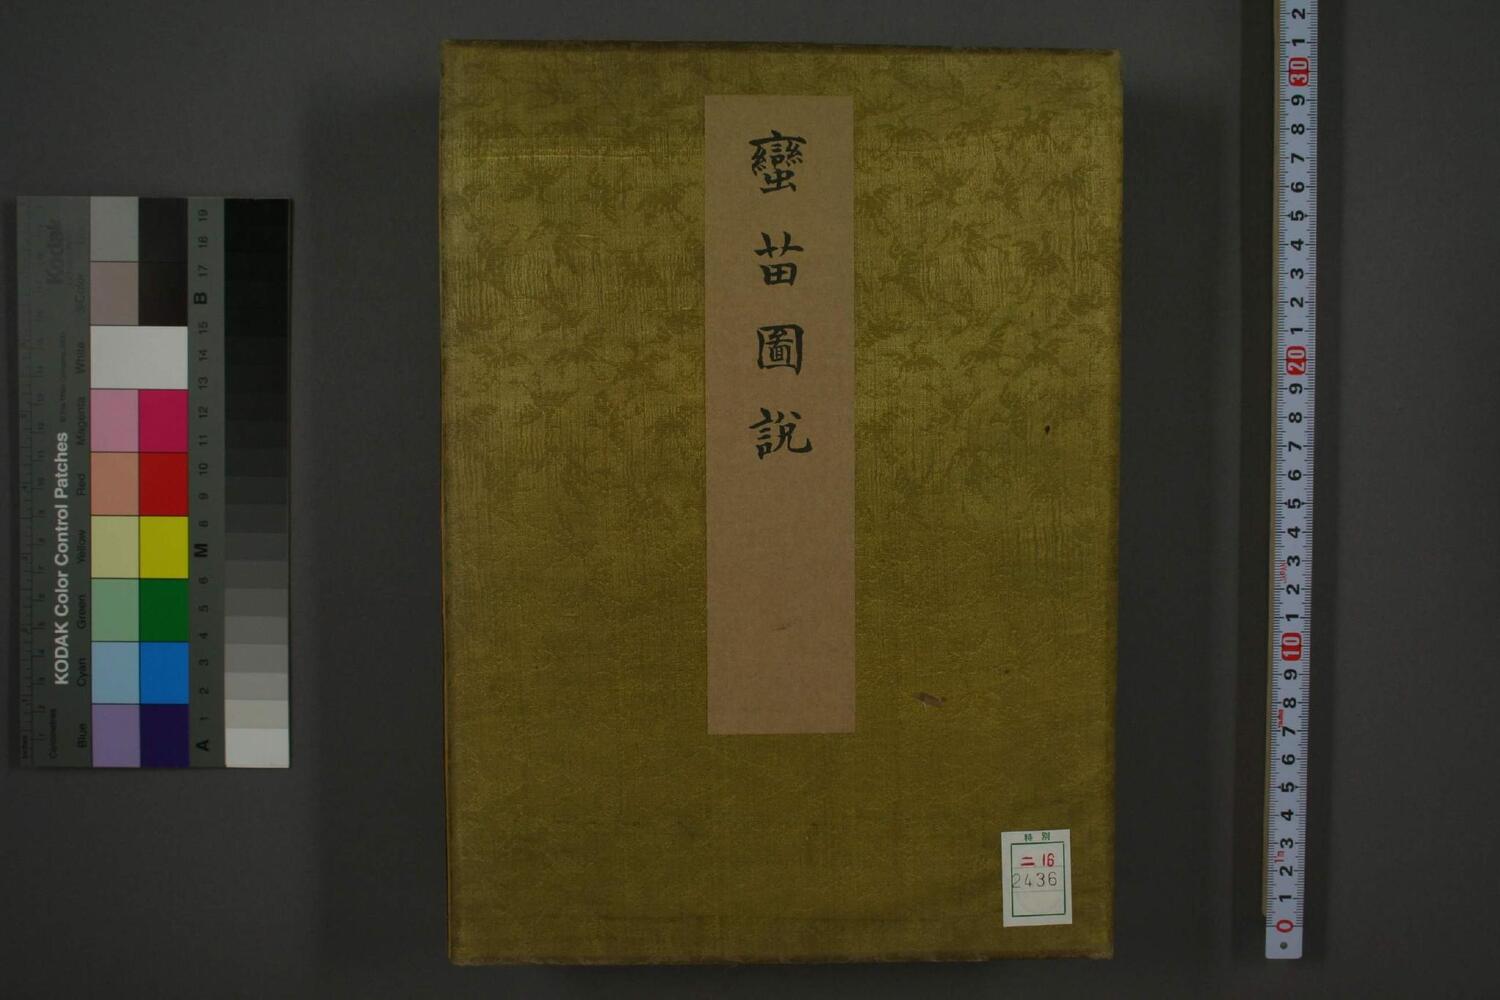 蠻苗圖說
特別
二 16
2436
KODAK Color Control Patches
Blue
Cyan
Green
Yellow
Red
Magenta
White
3/Color
Kodak
Centimetres
Inches
A 1 2 3 4 5 6 M 8 9 10 11 12 13 14 15 B 17 18 19
2
1
30
9
8
7
6
5
4
3
2
1
20
9
8
7
6
5
4
3
2
1
10
9
8
7
6
5
4
3
2
1
0
1m